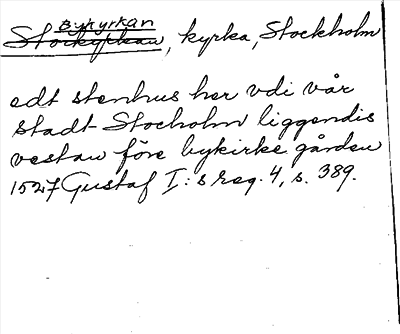 Bykyrkan
Storkyrkan, kyrka, Stockholm
edt stenhus her vdi vår
stadt Stocholm liggendis
vestan före bykirke gården
1527 Gustaf I:s reg. 4, s. 389.